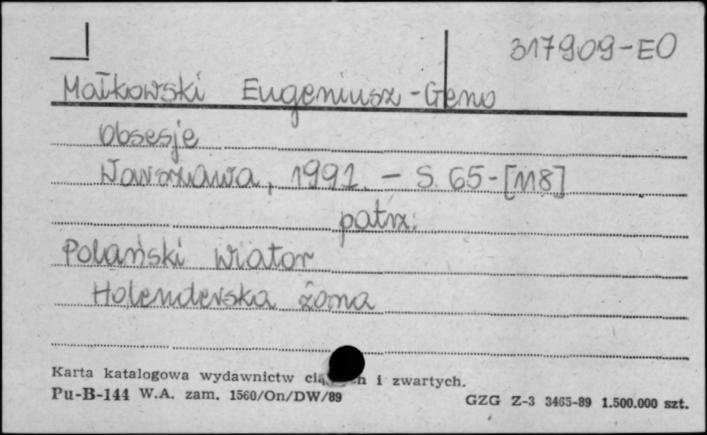 317909-EO
Małkowski Eugeniusz-Geno
Obsesje
Warszawa, 1991. - S. 65-[118]
patrz:
Polański Wiator
Holenderska żona
Karta katalogowa wydawnictw i zwartych.
Pu-B-144 W.A. zam. 1560/On/DW/89
GZG Z-3 3465-89 1.500.000 szt.